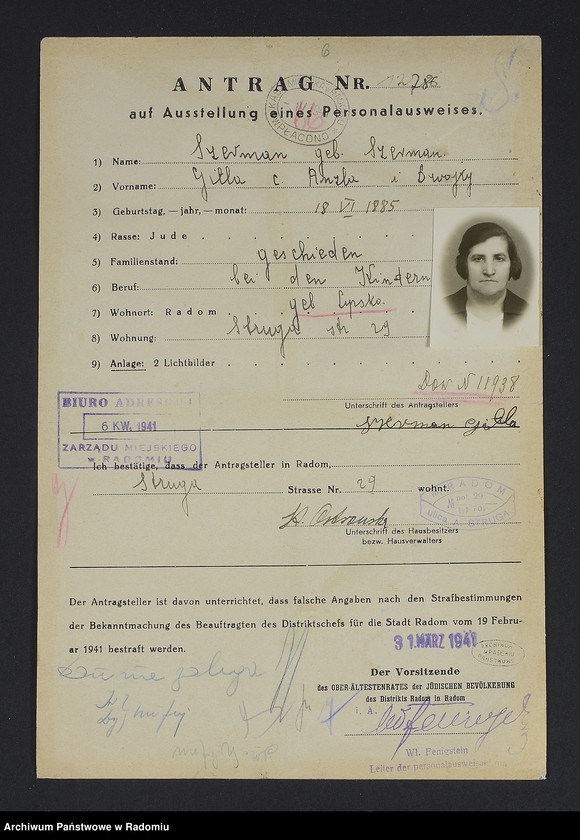 6
ANTRAG NR. 12786
auf Ausstellung eines Personalausweises.
WPŁACONO
1) Name: Szerman geb. Szerman.
2) Vorname: Gitla c. Anzla i Brajty
3) Geburtstag, — jahr, — monat: 18 VI 1885
4) Rasse: Jude
5) Familienstand: geschieden
6) Beruf: bei den Kindern
geb Lipsko.
7) Wohnort: Radom
8) Wohnung: Struga str 29
9) Anlage: 2 Lichtbilder
Dow N 11938
Unterschrift des Antragstellers
Szerman Gitla
BIURO ADRESOWE
6 KW. 1941
ZARZĄDU MIEJSKIEGO
W RADOMIU
Ich bestätige, dass der Antragsteller in Radom,
Struga Strasse Nr. 29 wohnt.
RADOM
ulica A. STRUGA
Unterschrift des Hausbesitzers
bezw. Hausverwalters
Der Antragsteller ist davon unterrichtet, dass falsche Angaben nach den Strafbestimmungen
der Bekanntmachung des Beauftragten des Distriktschefs für die Stadt Radom vom 19 Febru-
ar 1941 bestraft werden.
31. MÄRZ 1941
Der Vorsitzende
des OBER-ÄLTESTENRATES der JÜDISCHEN BEVÖLKERUNG
des Distrikts Radom in Radom
i. A.
Wł. Fenigstein
Leiter der personalausweis
Archiwum Państwowe w Radomiu